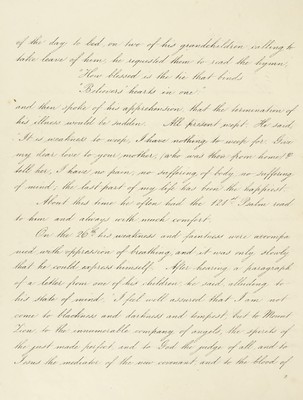 of the day to bed, on two of his grandchildren calling to
take leave of them, he requested them to read the hymn,
"How blessed is the tie that binds
"Believers' hearts in one"
and then spoke of his apprehension that the termination of
his illness would be sudden. All present wept. He said,
"It is weakness to weep, I have nothing to weep for. Give
my dear love to your mother, (who was then from home) &
tell her, I have no pain, no suffering of body, no suffering
of mind, the last part of my life has been the happiest.
About this time he often had the 121st Psalm read
to him and always with much comfort.
On the 26th his weakness and faintness were accompa
nied with oppression of breathing, and it was only slowly
that he could express himself. After hearing a paragraph
of a letter from one of his children he said, alluding to
his state of mind, I feel well assured that I am not
come to blackness and darkness and tempest, but to Mount
Zion, to the innumerable company of angels, the spirits of
the just made perfect, and to God the judge of all, and to
Jesus the mediator of the new covenant, and to the blood of